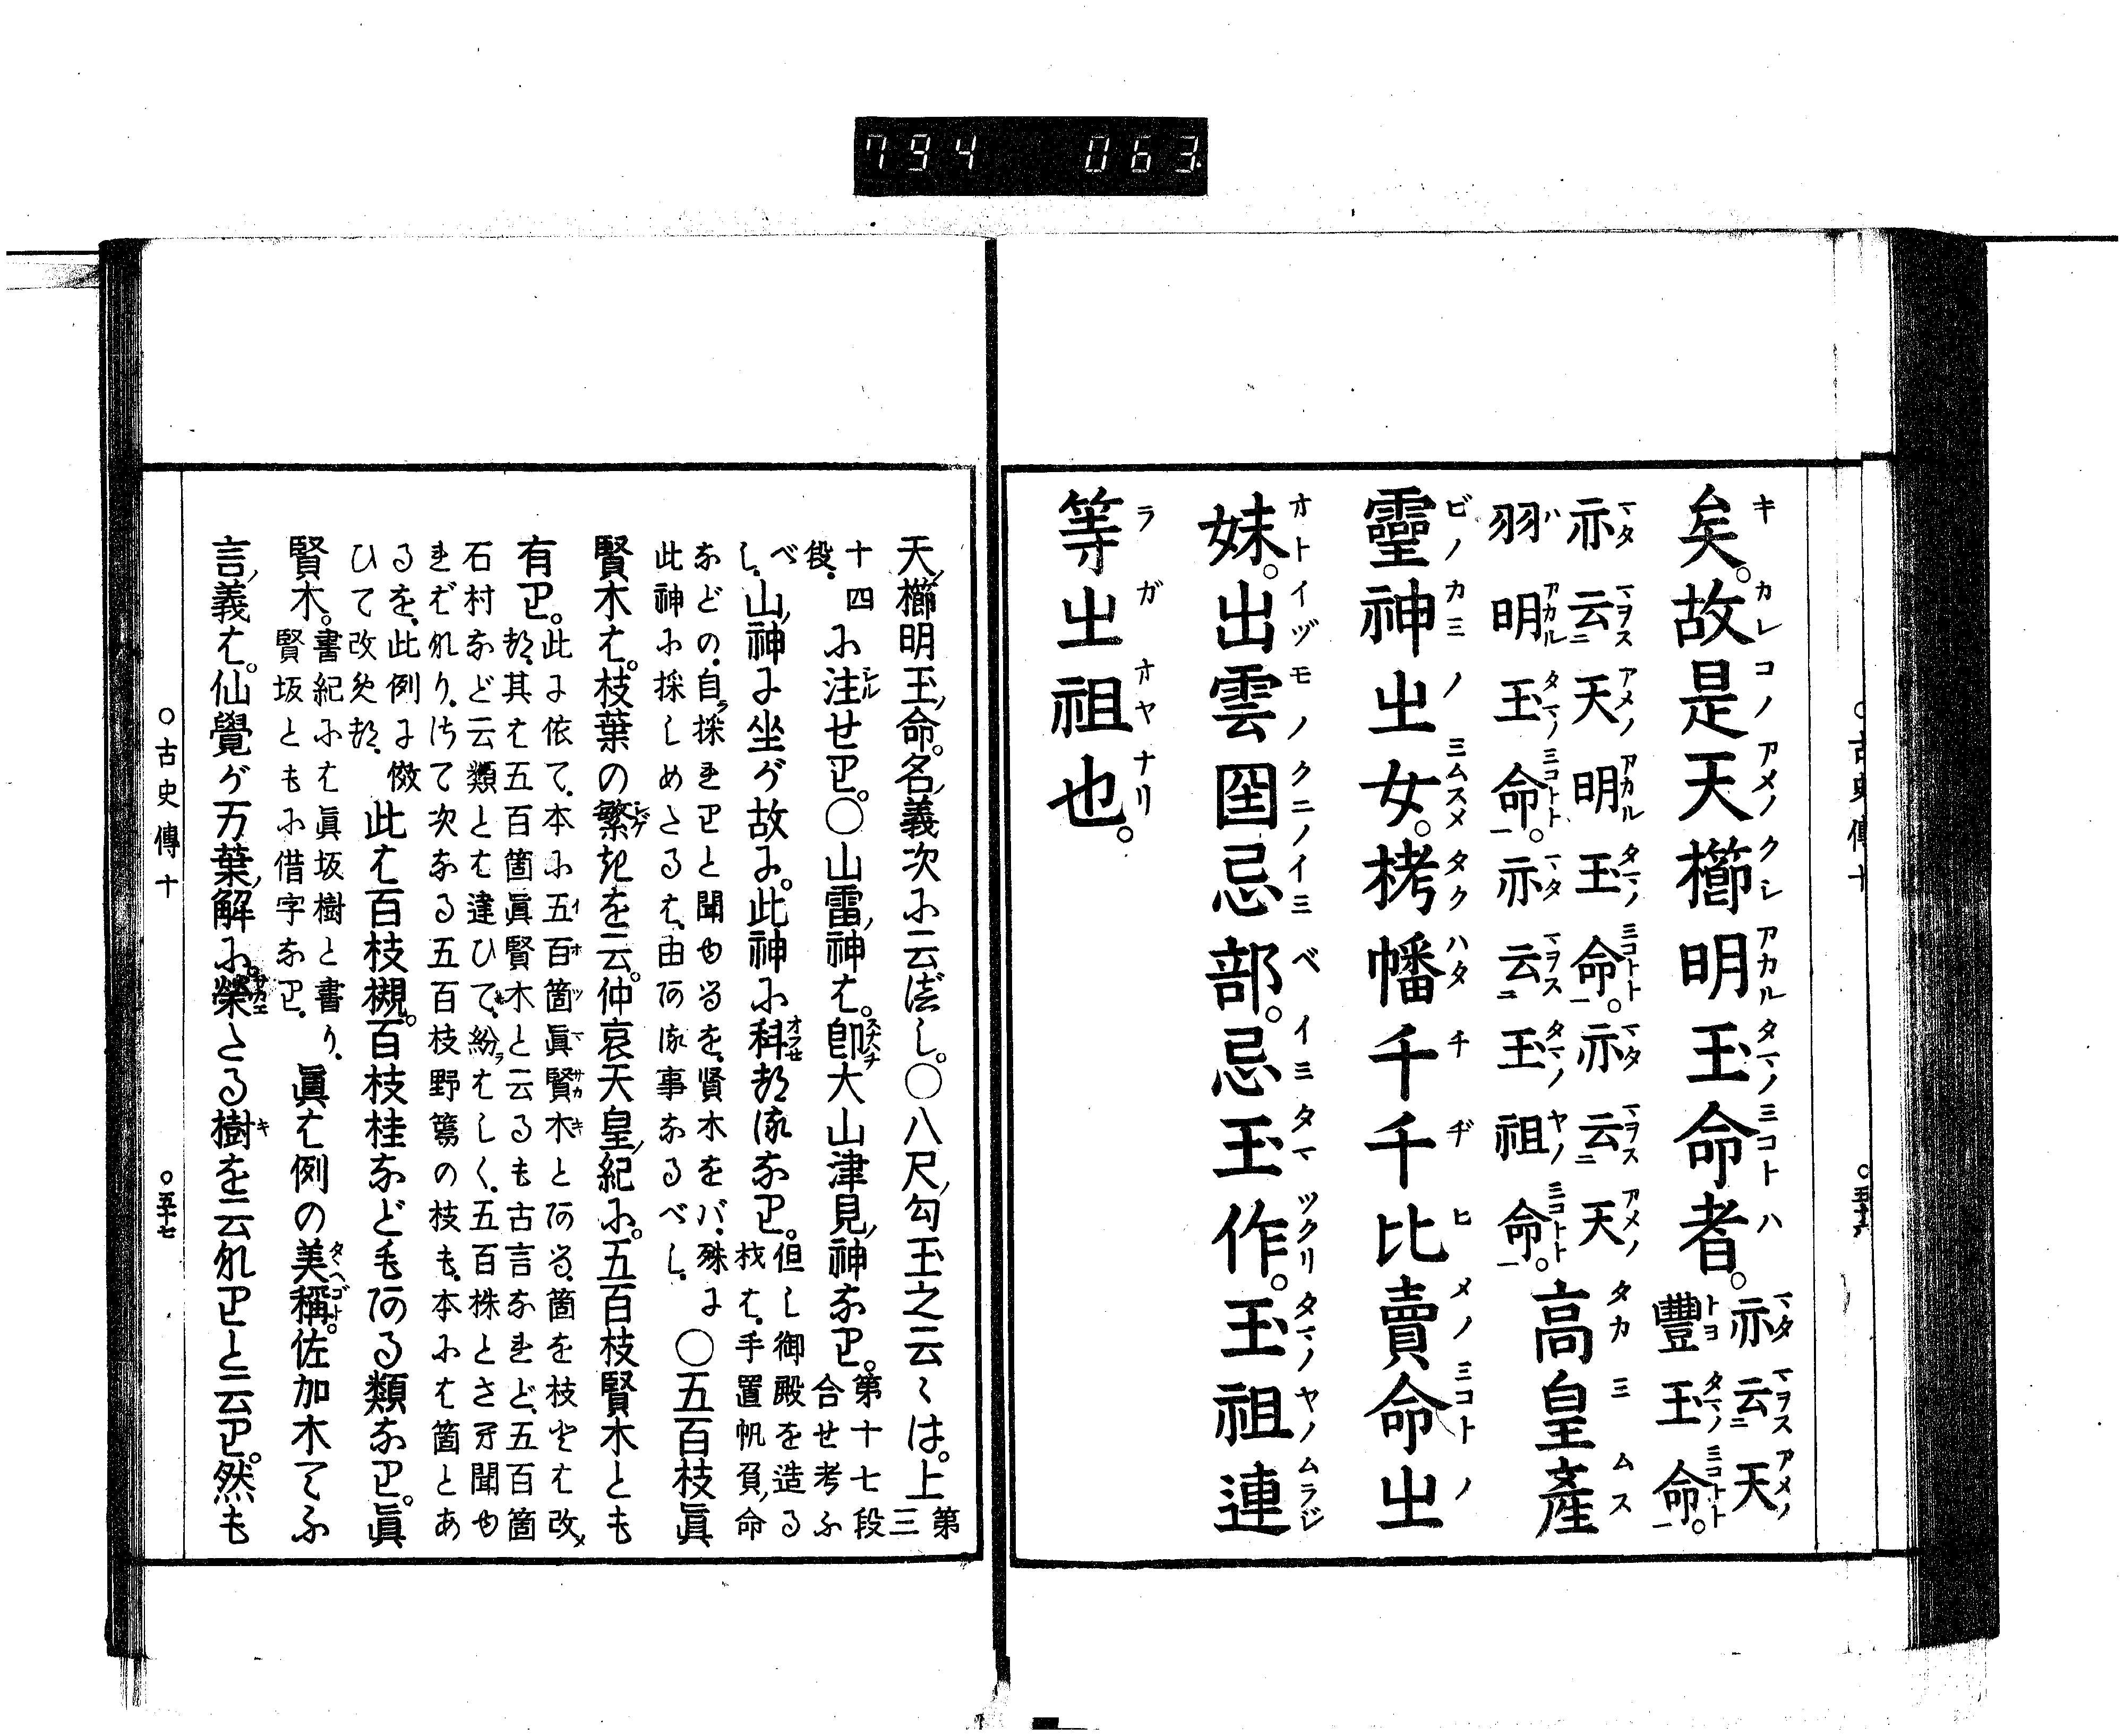 794 063
矣。故是天櫛明玉命者。亦云天豐玉命。
亦云天明玉命。亦云天羽明玉命。亦云玉祖命。高皇產
靈神之女。栲幡千千比賣命之
妹。出雲国忌部。忌玉作。玉祖連
等之祖也。
天櫛明玉命。名義次に云べし。○八尺勾玉之云々は。上第三
十四段に注せり。○山雷神は。卽大山津見神なり。第十七段合せ考ふ
べし。山神に坐が故に。此神に科たるなり。但し御殿を造る材は、手置帆負命
などの、自採れりと聞ゆるを、賢木をバ、殊に此神に採しめたるは、由ある事なるべし。○五百枝眞
賢木は。枝葉の繁きを云。仲哀天皇紀に。五百枝賢木とも
有り。此に依て、本に五百箇眞賢木とある、箇を枝とは改つ、其は五百箇眞賢木と云るも古言なれど、五百箇
石村など云類とは違ひて、紛はしく、五百株とさへ聞ゆればなり、さて次なる五百枝野篶の枝も、本には箇とあ
るを、此例に傚ひて改めつ、此は百枝槻。百枝桂などもある類なり。眞
賢木。書紀には眞坂樹と書り、賢坂ともに借字なり、眞は例の美稱。佐加木てふ
言義は。仙覺が万葉解に。榮たる樹を云なりと云り。然も
○古史傳十 ○五十七